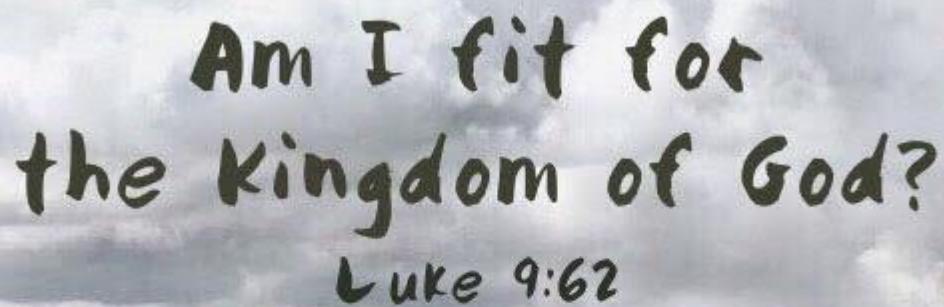 Am I fit for
the Kingdom of God?
Luke 9:62